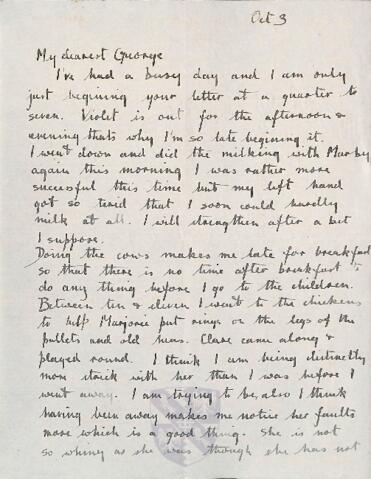 Oct 3
My dearest George
I've had a busy day and I am only
just begining your letter at a quarter to
seven. Violet is out for the afternoon &
evening thats why I'm so late begining it.
I went down and did the milking with
again this morning I was rather more
successful this time but my left hand
got so tired that I soon could hardly
milk at all. I will strengthen after a bit
I suppose.
Doing the cows makes me late for breakfast
so that there is no time after breakfast to
do any thing before I go to the children.
Between ten & eleven I went to the chickens
to help Marjorie put rings on the legs of the
pullets and old hens. Clare came along &
played round. I think I am being distinctly
more strict with her than I was before I
went away. I am trying to be, also I think
having been away makes me notice her faults
more which is a good thing. She is not
so whiny as she was though she has not